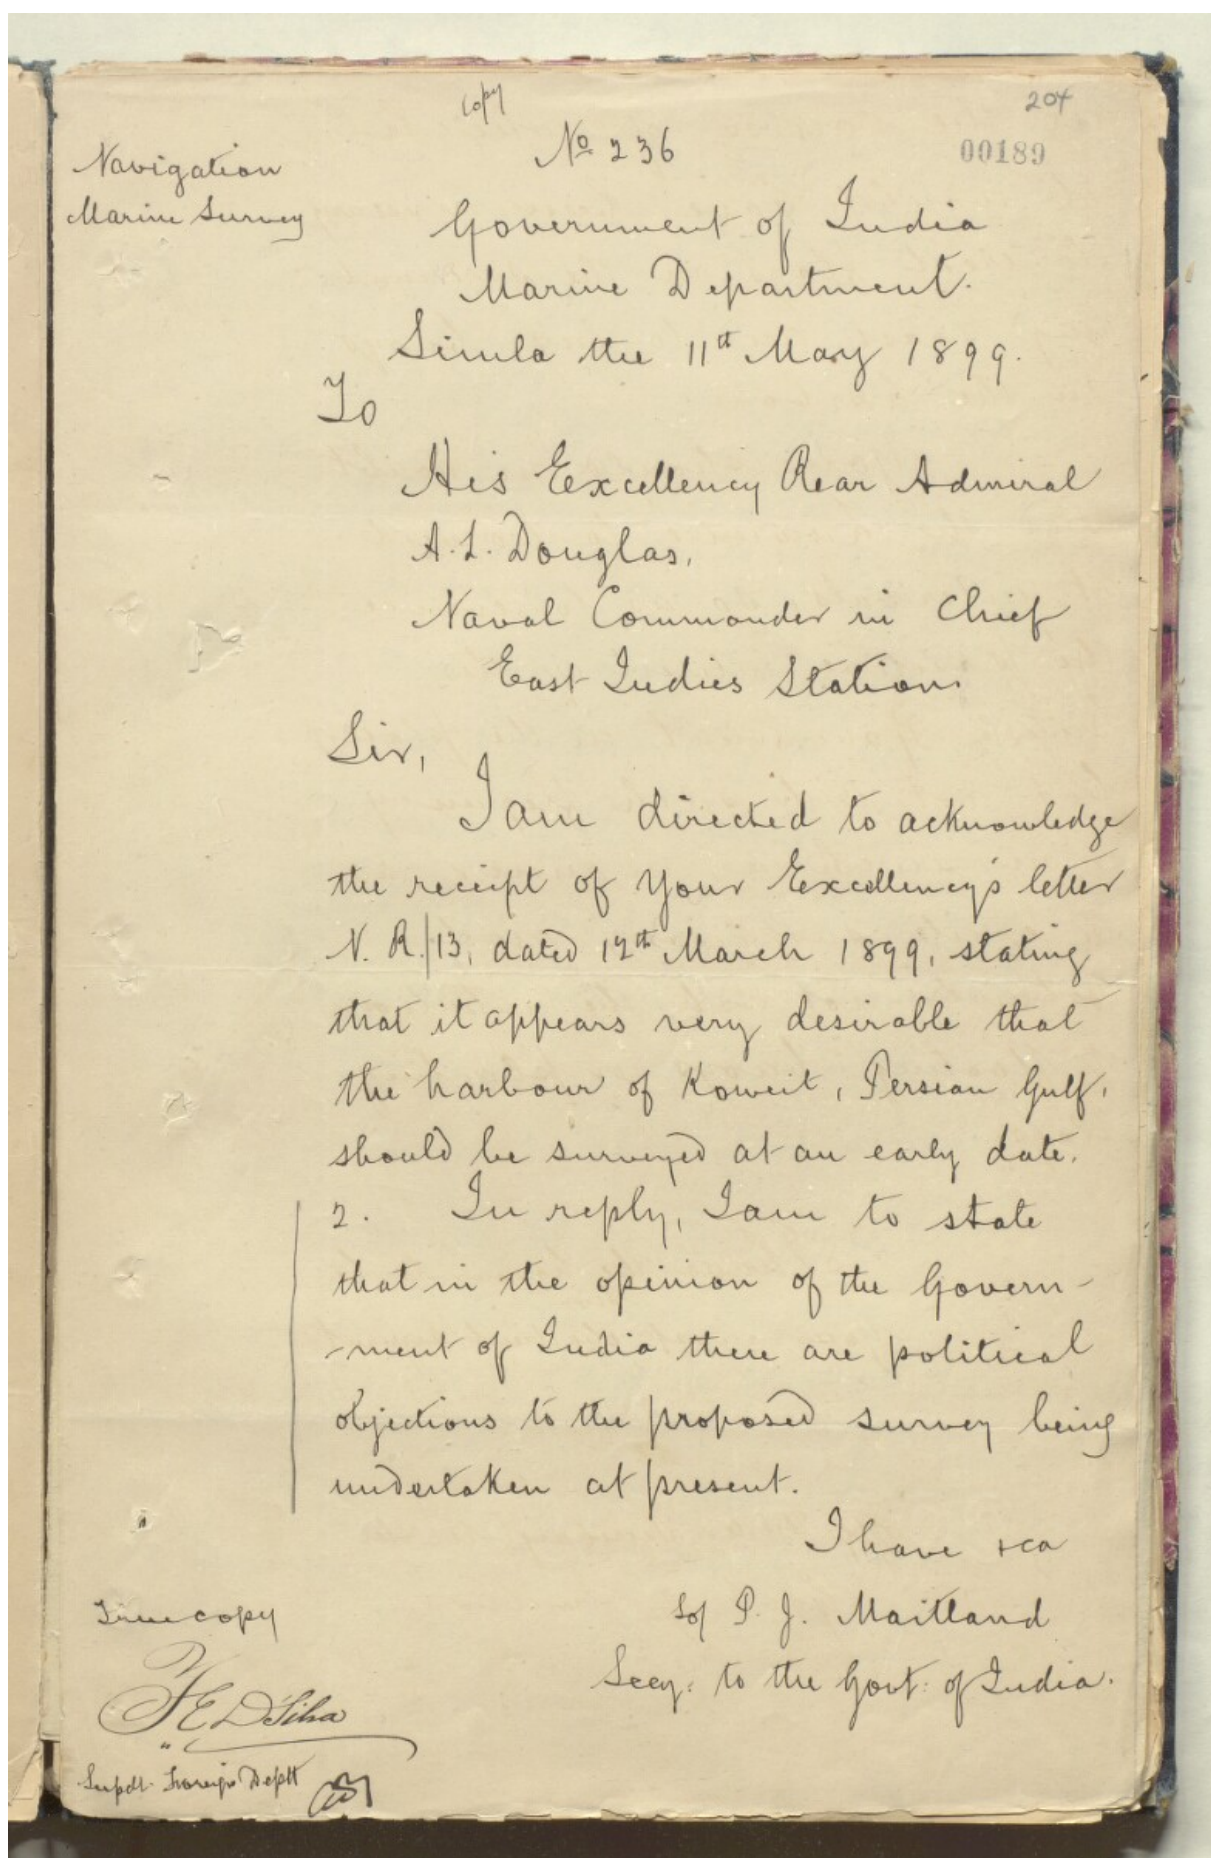 Copy
204
Nº 236
00189
Navigation
Marine Survey
Government of India
Marine Department.
Simla the 11th May 1899.
To
His Excellency Rear Admiral
A. L. Douglas,
Naval Commander in Chief
East Indies Station
Sir,
I am directed to acknowledge
the receipt of Your Excellency's letter
N. R./13, dated 12th March 1899, stating
that it appears very desirable that
the harbour of Koweit, Persian Gulf,
should be surveyed at an early date.
2. In reply, I am to state
that in the opinion of the Govern-
-ment of India there are political
objections to the proposed survey being
undertaken at present.
I have &ca
Sd/ P. J. Maitland
Secy: to the Govt: of India.
True copy
F E D'Silva
Supdt. Foreign Deptt